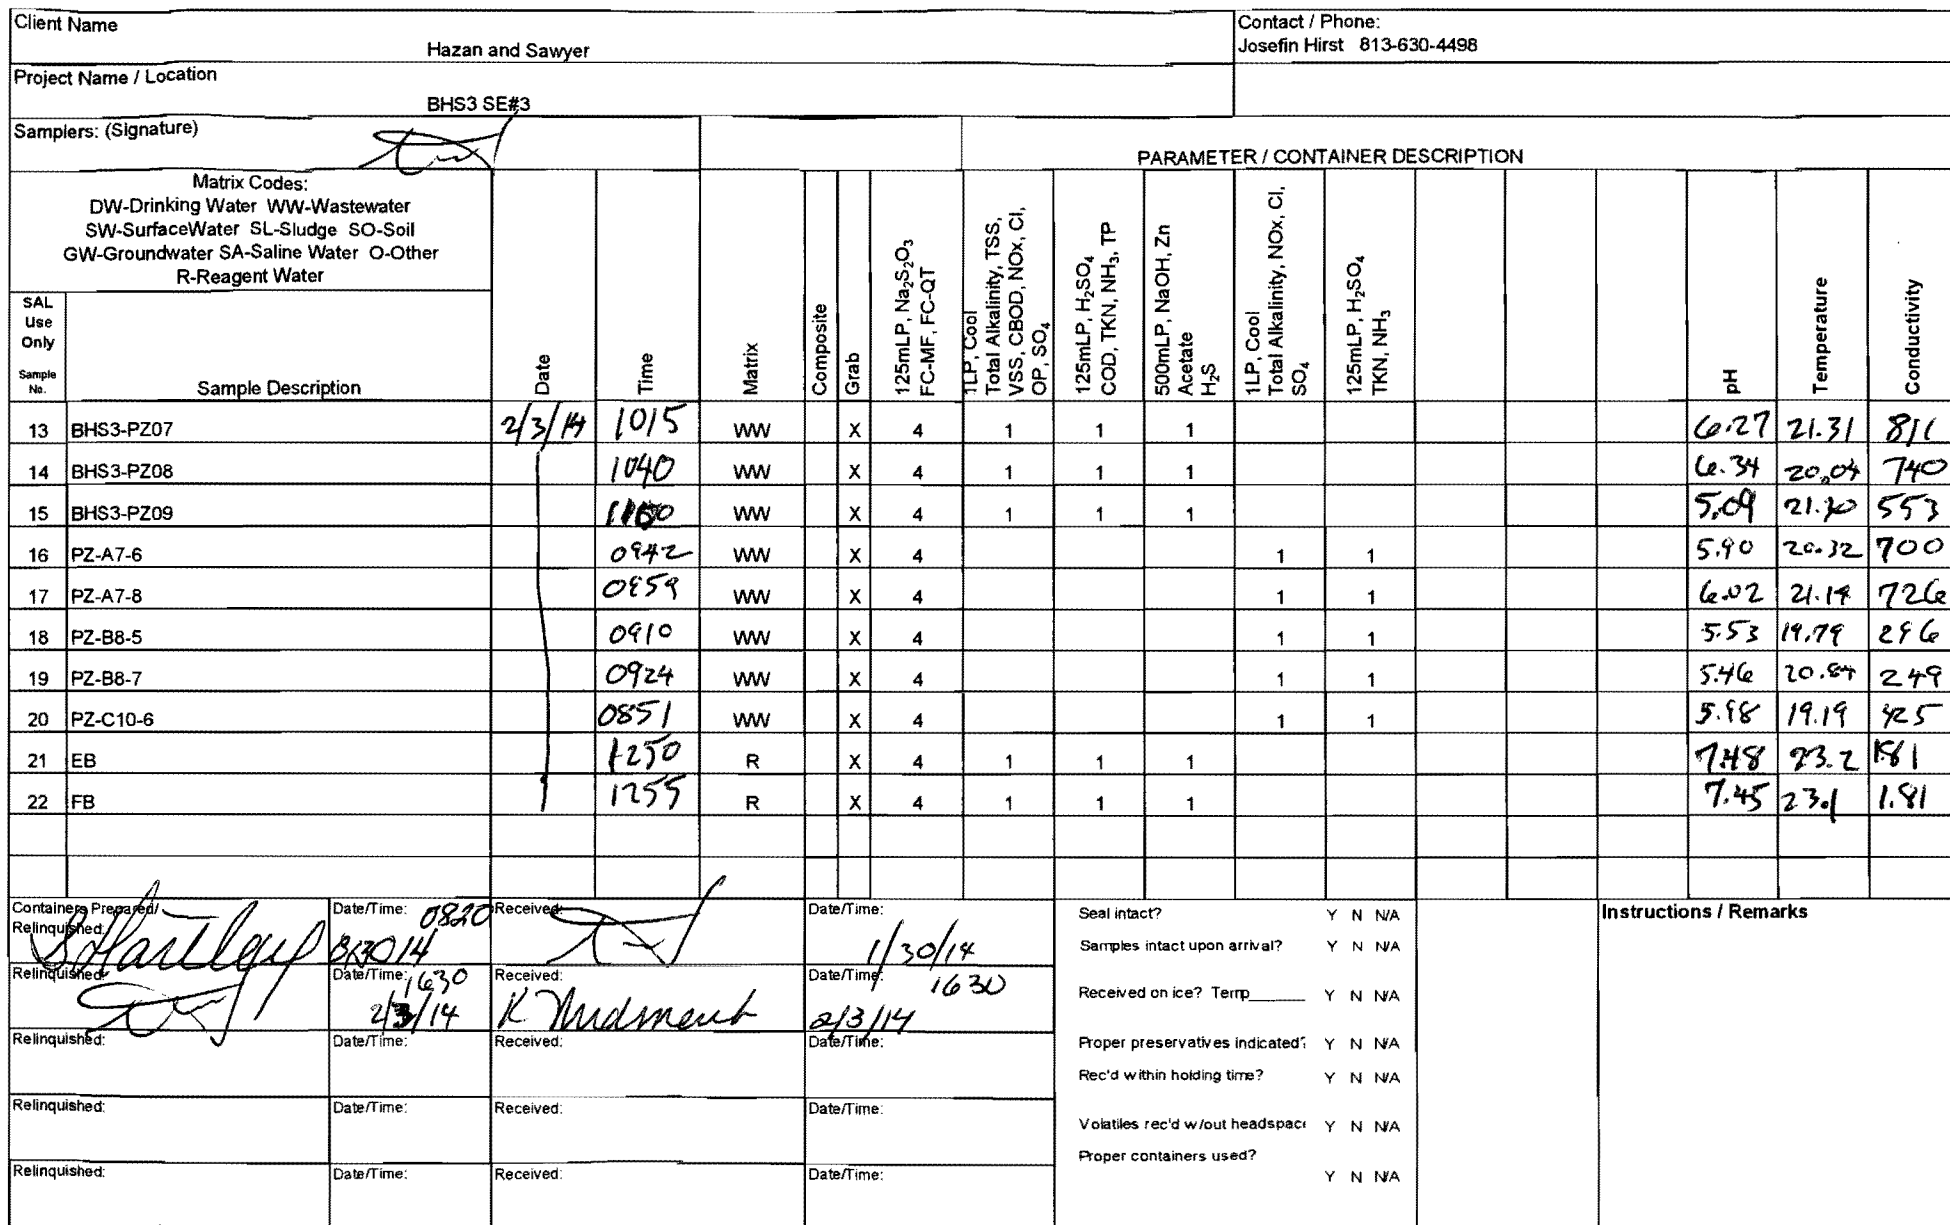 Client Name
Hazan and Sawyer
Contact / Phone:
Josefin Hirst 813-630-4498
Project Name / Location
BHS3 SE#3
Samplers: (Signature)
PARAMETER / CONTAINER DESCRIPTION
Matrix Codes:
DW-Drinking Water WW-Wastewater
SW-SurfaceWater SL-Sludge SO-Soil
GW-Groundwater SA-Saline Water O-Other
R-Reagent Water
SAL
Use
Only
Sample
No.
Sample Description
Date
Time
Matrix
Composite
Grab
125mLP, Na₂S₂O₃
FC-MF, FC-QT
1LP, Cool
Total Alkalinity, TSS,
VSS, CBOD, NOx, Cl,
OP, SO₄
125mLP, H₂SO₄
COD, TKN, NH₃, TP
500mLP, NaOH, Zn
Acetate
H₂S
1LP, Cool
Total Alkalinity, NOx, Cl,
SO₄
125mLP, H₂SO₄
TKN, NH₃
pH
Temperature
Conductivity
13 BHS3-PZ07 2/3/14 1015 WW X 4 1 1 1 6.27 21.31 811
14 BHS3-PZ08 1040 WW X 4 1 1 1 6.34 20.04 740
15 BHS3-PZ09 WW X 4 1 1 1 5.09 553
16 PZ-A7-6 0942 WW X 4 1 1 5.90 20.32 700
17 PZ-A7-8 0859 WW X 4 1 1 6.02 21.19 726
18 PZ-B8-5 0910 WW X 4 1 1 5.53 19.79 296
19 PZ-B8-7 0924 WW X 4 1 1 5.46 20.84 249
20 PZ-C10-6 0851 WW X 4 1 1 5.98 19.19 425
21 EB 1250 R X 4 1 1 1 7.48 23.2 1.81
22 FB 1255 R X 4 1 1 1 7.45 23.1 1.81
Containers Prepared/
Relinquished:
Date/Time: 0820
Received:
Date/Time:
1/30/14
Seal intact? Y N N/A
Instructions / Remarks
Samples intact upon arrival? Y N N/A
Relinquished:
Date/Time: 1630
2/3/14
Received:
Date/Time: 1630
2/3/14
Received on ice? Temp______ Y N N/A
Relinquished:
Date/Time:
Received:
Date/Time:
Proper preservatives indicated? Y N N/A
Rec'd within holding time? Y N N/A
Relinquished:
Date/Time:
Received:
Date/Time:
Volatiles rec'd w/out headspac Y N N/A
Proper containers used?
Y N N/A
Relinquished:
Date/Time:
Received:
Date/Time: